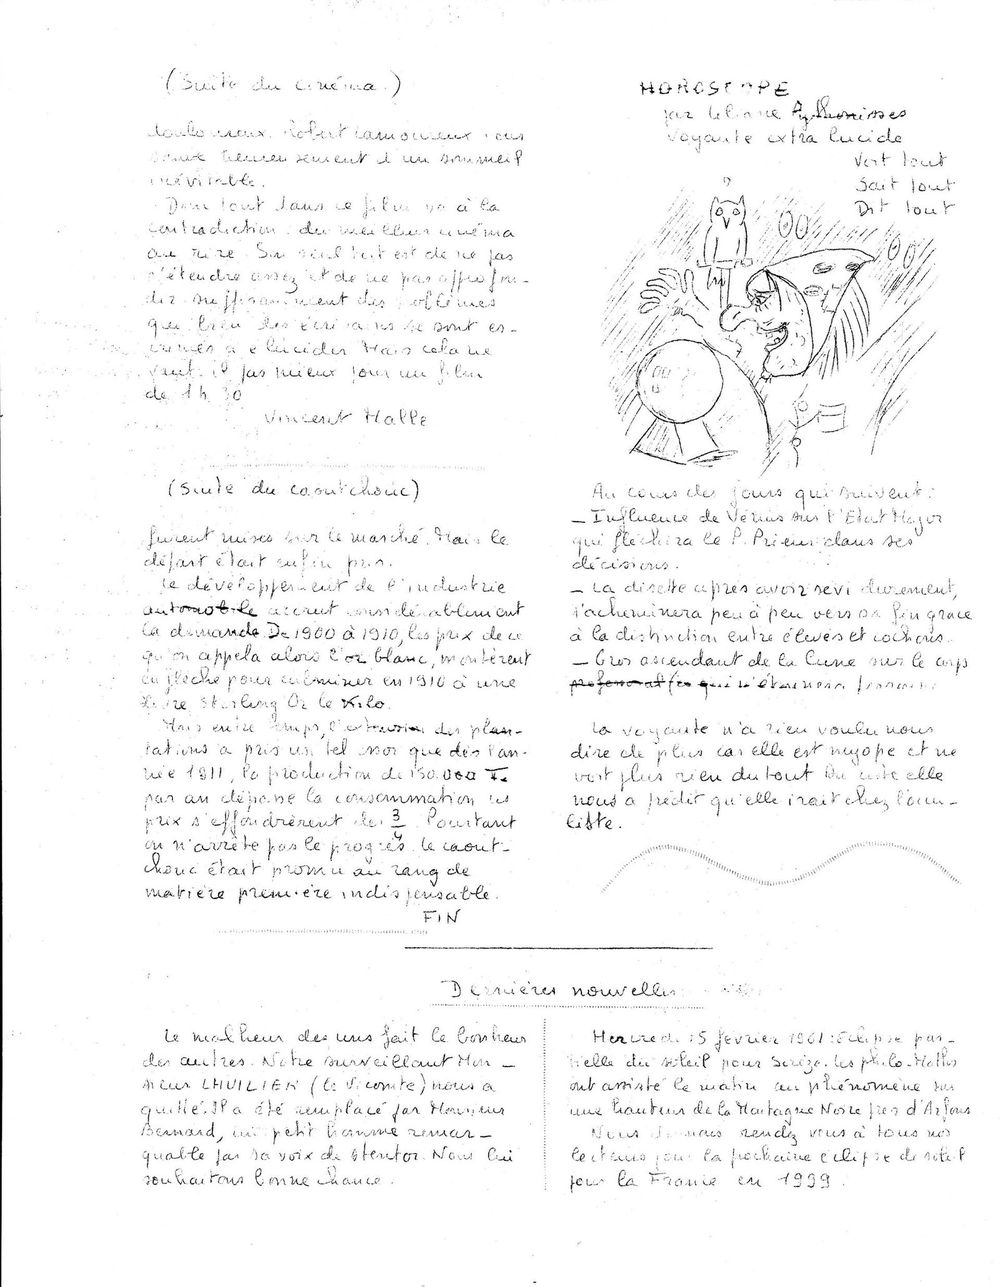 (Suite du cinéma.)
douloureux. Robert Lamoureux vous
sauve heureusement d'un sommeil
inévitable.
Donc tout dans ce film va à la
contradiction: du meilleur cinéma
au rire. Son seul tort est de ne pas
s'étendre assez et de ne pas approfon-
dir suffisamment des problèmes
que bien des écrivains se sont es-
crimés à élucider. Mais cela ne
vaut-il pas mieux pour un film
de 1h 30
Vincent Malle
(Suite du caoutchouc)
furent mises sur le marché. Mais le
départ était enfin pris.
Le développement de l'industrie
automobile accrut considérablement
la demande. De 1900 à 1910, les prix de ce
qu'on appela alors l'or blanc, montèrent
en flèche pour culminer en 1910 à une
livre sterling Or le Kilo.
Mais entre temps, l'extension des plan-
tations a pris un tel essor que dès l'an-
née 1911, la production de 150.000 T.
par an dépasse la consommation les
prix s'effondrèrent de 3/4 Pourtant
on n'arrête pas le progrès. le caout-
chouc était promu au rang de
matière première indispensable.
FIN
HOROSCOPE
par Liliane
voyante extra lucide
Voit tout
Sait tout
Dit tout
Au cours des jours qui suivent:
- Influence de Vénus sur l'Etat Major
qui fléchira le P. Prieur dans ses
décisions.
- La disette après avoir sévi durement,
s'acheminera peu à peu vers sa fin grâce
à la distinction entre élèves et cochons.
- Gros ascendant de la Lune sur le corps
professoral (ce qui n'étonnera personne)
La voyante n'a rien voulu nous
dire de plus car elle est myope et ne
voit plus rien du tout Du reste elle
nous a prédit qu'elle irait chez l'ocu-
liste.
Dernières nouvelles
Le malheur des uns fait le bonheur
des autres. Notre surveillant Mon-
sieur LHUILIER (le Vicomte) nous a
quitté. Il a été remplacé par Monsieur
Bernard, un petit homme remar-
quable par sa voix de stentor. Nous lui
souhaitons bonne chance.
Mercredi 15 février 1961: éclipse par-
tielle du soleil pour Sorèze. Les philo-Maths
ont assisté le matin au phénomène sur
une hauteur de la Montagne Noire près d'Arfons
Nous donnons rendez vous à tous nos
lecteurs pour la prochaine éclipse de soleil
pour la France en 1999.